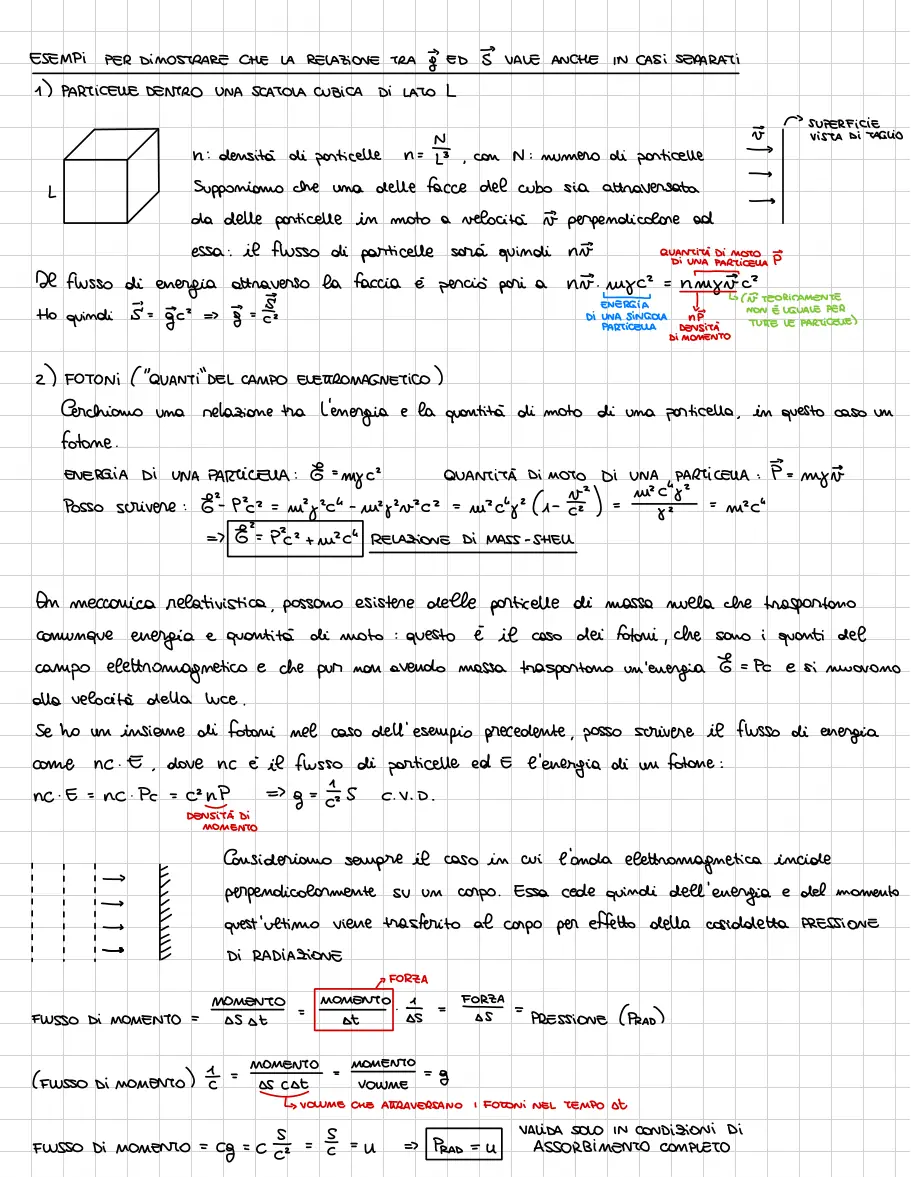 ESEMPI PER DIMOSTRARE CHE LA RELAZIONE TRA $\vec{g}$ ED $\vec{S}$ VALE ANCHE IN CASI SEPARATI
1) PARTICELLE DENTRO UNA SCATOLA CUBICA DI LATO L
SUPERFICIE
VISTA DI TAGLIO
$\vec{v}$
L
n: densità di particelle $n = \frac{N}{L^3}$, con N: numero di particelle
Supponiamo che una delle facce del cubo sia attraversata
da delle particelle in moto a velocità $\vec{v}$ perpendicolare ad
essa: il flusso di particelle sarà quindi $n\vec{v}$
QUANTITÀ DI MOTO
DI UNA PARTICELLA $\vec{P}$
Il flusso di energia attraverso la faccia è perciò pari a $n\vec{v} \cdot m\gamma c^2 = nm\gamma\vec{v}c^2$
ENERGIA
DI UNA SINGOLA
PARTICELLA
$n\vec{P}$
DENSITÀ
DI MOMENTO
($\vec{v}$ TEORICAMENTE
NON È UGUALE PER
TUTTE LE PARTICELLE)
Ho quindi $\vec{S} = \vec{g}c^2 \Rightarrow \vec{g} = \frac{\vec{S}}{c^2}$
2) FOTONI ("QUANTI" DEL CAMPO ELETTROMAGNETICO)
Cerchiamo una relazione tra l'energia e la quantità di moto di una particella, in questo caso un
fotone.
ENERGIA DI UNA PARTICELLA: $\mathcal{E} = m\gamma c^2$ QUANTITÀ DI MOTO DI UNA PARTICELLA: $\vec{P} = m\gamma\vec{v}$
Posso scrivere: $\mathcal{E}^2 - P^2c^2 = m^2\gamma^2c^4 - m^2\gamma^2v^2c^2 = m^2c^4\gamma^2\left(1 - \frac{v^2}{c^2}\right) = \frac{m^2c^4\gamma^2}{\gamma^2} = m^2c^4$
$\Rightarrow \mathcal{E}^2 = P^2c^2 + m^2c^4$ RELAZIONE DI MASS-SHELL
In meccanica relativistica, possono esistere delle particelle di massa nulla che trasportano
comunque energia e quantità di moto: questo è il caso dei fotoni, che sono i quanti del
campo elettromagnetico e che pur non avendo massa trasportano un'energia $\mathcal{E} = Pc$ e si muovono
alla velocità della luce.
Se ho un insieme di fotoni nel caso dell'esempio precedente, posso scrivere il flusso di energia
come $nc \cdot E$, dove nc è il flusso di particelle ed E l'energia di un fotone:
$nc \cdot E = nc \cdot Pc = c^2nP \Rightarrow g = \frac{1}{c^2}S$ C.V.D.
DENSITÀ DI
MOMENTO
Consideriamo sempre il caso in cui l'onda elettromagnetica incide
perpendicolarmente su un corpo. Essa cede quindi dell'energia e del momento
quest'ultimo viene trasferito al corpo per effetto della cosiddetta PRESSIONE
DI RADIAZIONE
FORZA
FLUSSO DI MOMENTO = $\frac{\text{MOMENTO}}{\Delta S\,\Delta t} = \frac{\text{MOMENTO}}{\Delta t} \cdot \frac{1}{\Delta S} = \frac{\text{FORZA}}{\Delta S}$ = PRESSIONE ($P_{RAD}$)
(FLUSSO DI MOMENTO) $\frac{1}{c} = \frac{\text{MOMENTO}}{\Delta S\,c\Delta t} = \frac{\text{MOMENTO}}{\text{VOLUME}} = g$
VOLUME CHE ATTRAVERSANO I FOTONI NEL TEMPO Δt
FLUSSO DI MOMENTO = $cg = c\frac{S}{c^2} = \frac{S}{c} = u \Rightarrow P_{RAD} = u$ VALIDA SOLO IN CONDIZIONI DI
ASSORBIMENTO COMPLETO